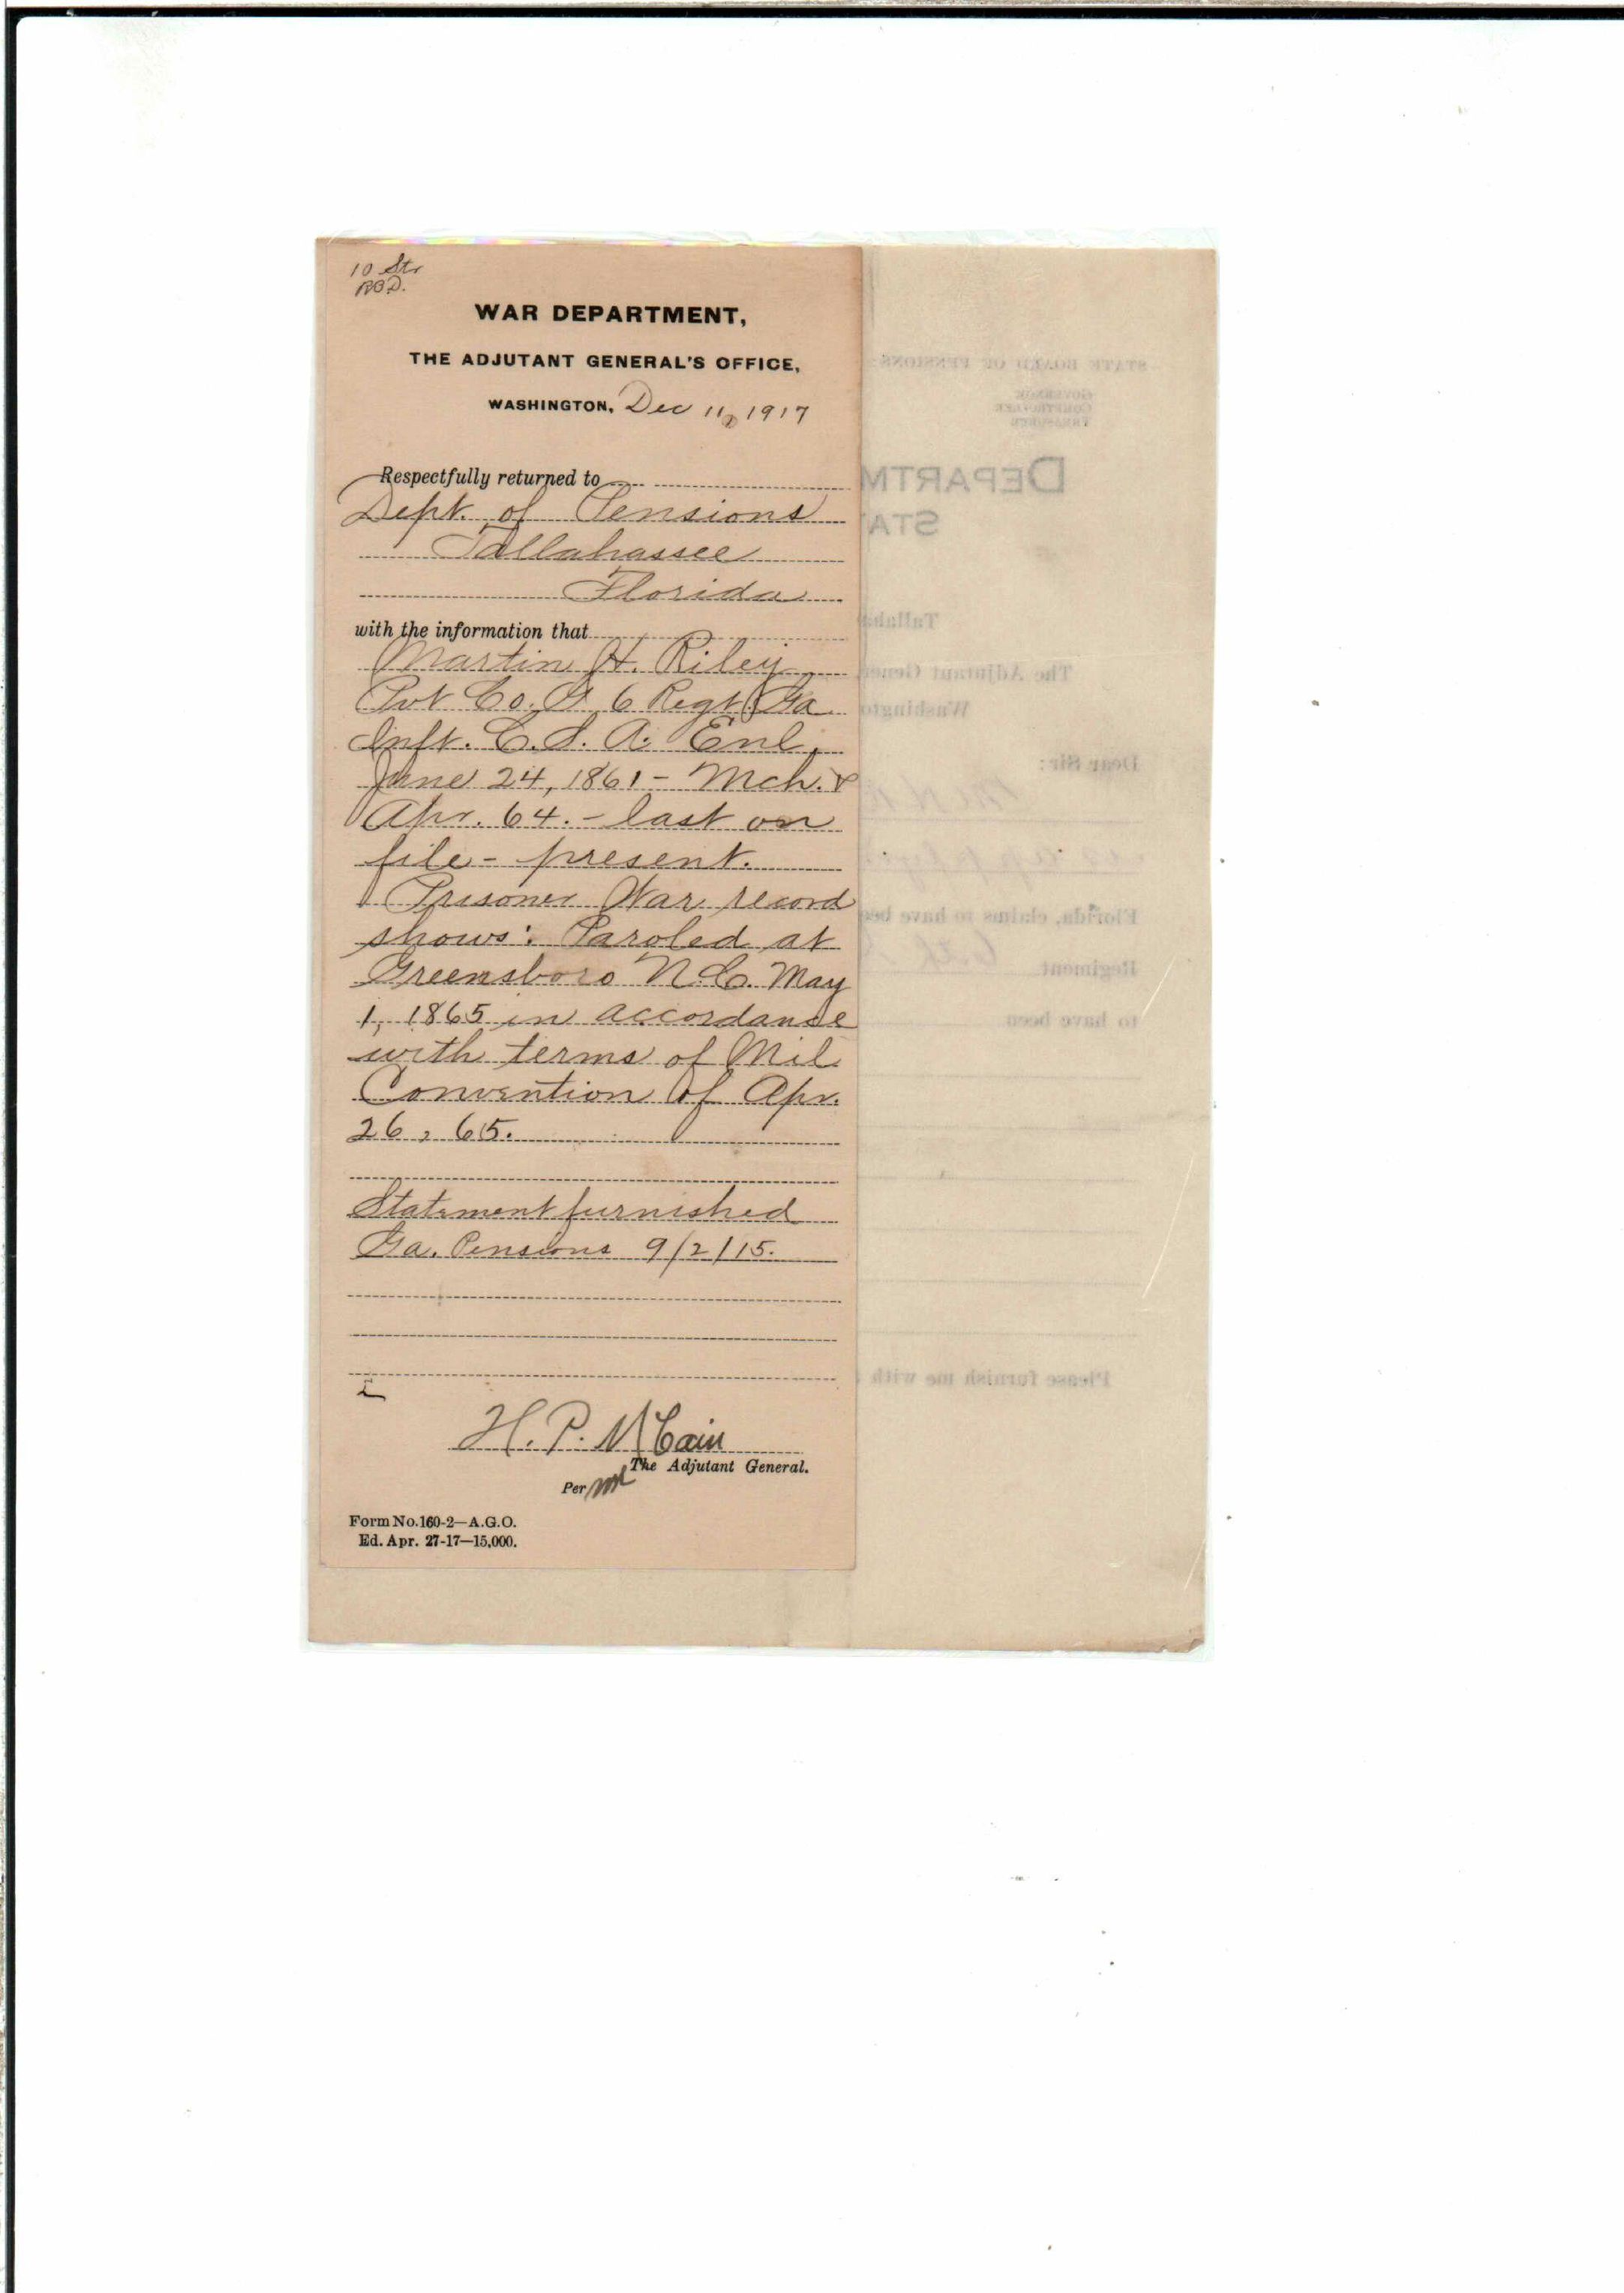 10 Str
WAR DEPARTMENT,
THE ADJUTANT GENERAL'S OFFICE,
WASHINGTON, Dec 11, 1917
Respectfully returned to
Dept. of Pensions
Tallahassee
Florida
with the information that
Martin H. Riley
Pvt Co. G 6 Regt Ga
Inft. C. S. A. Enl.
June 24, 1861 - Mch. &
Apr. 64. - last on
file - present.
Prisoner War record
shows: Paroled at
Greensboro N.C. May
1, 1865 in accordance
with terms of Mil
Convention of Apr.
26, 65.
Statement furnished
Ga. Pensions 9/2/15.
H. P. McCain
The Adjutant General.
Per
Form No. 160-2—A.G.O.
Ed. Apr. 27-17—15,000.
STATE BOARD OF PENSIONS
GOVERNOR
COMPTROLLER
TREASURER
DEPARTM
STA
Tallaha
The Adjutant Gener
Washingto
Dear Sir:
Florida, claims to have bee
Regiment
to have been
Please furnish me with